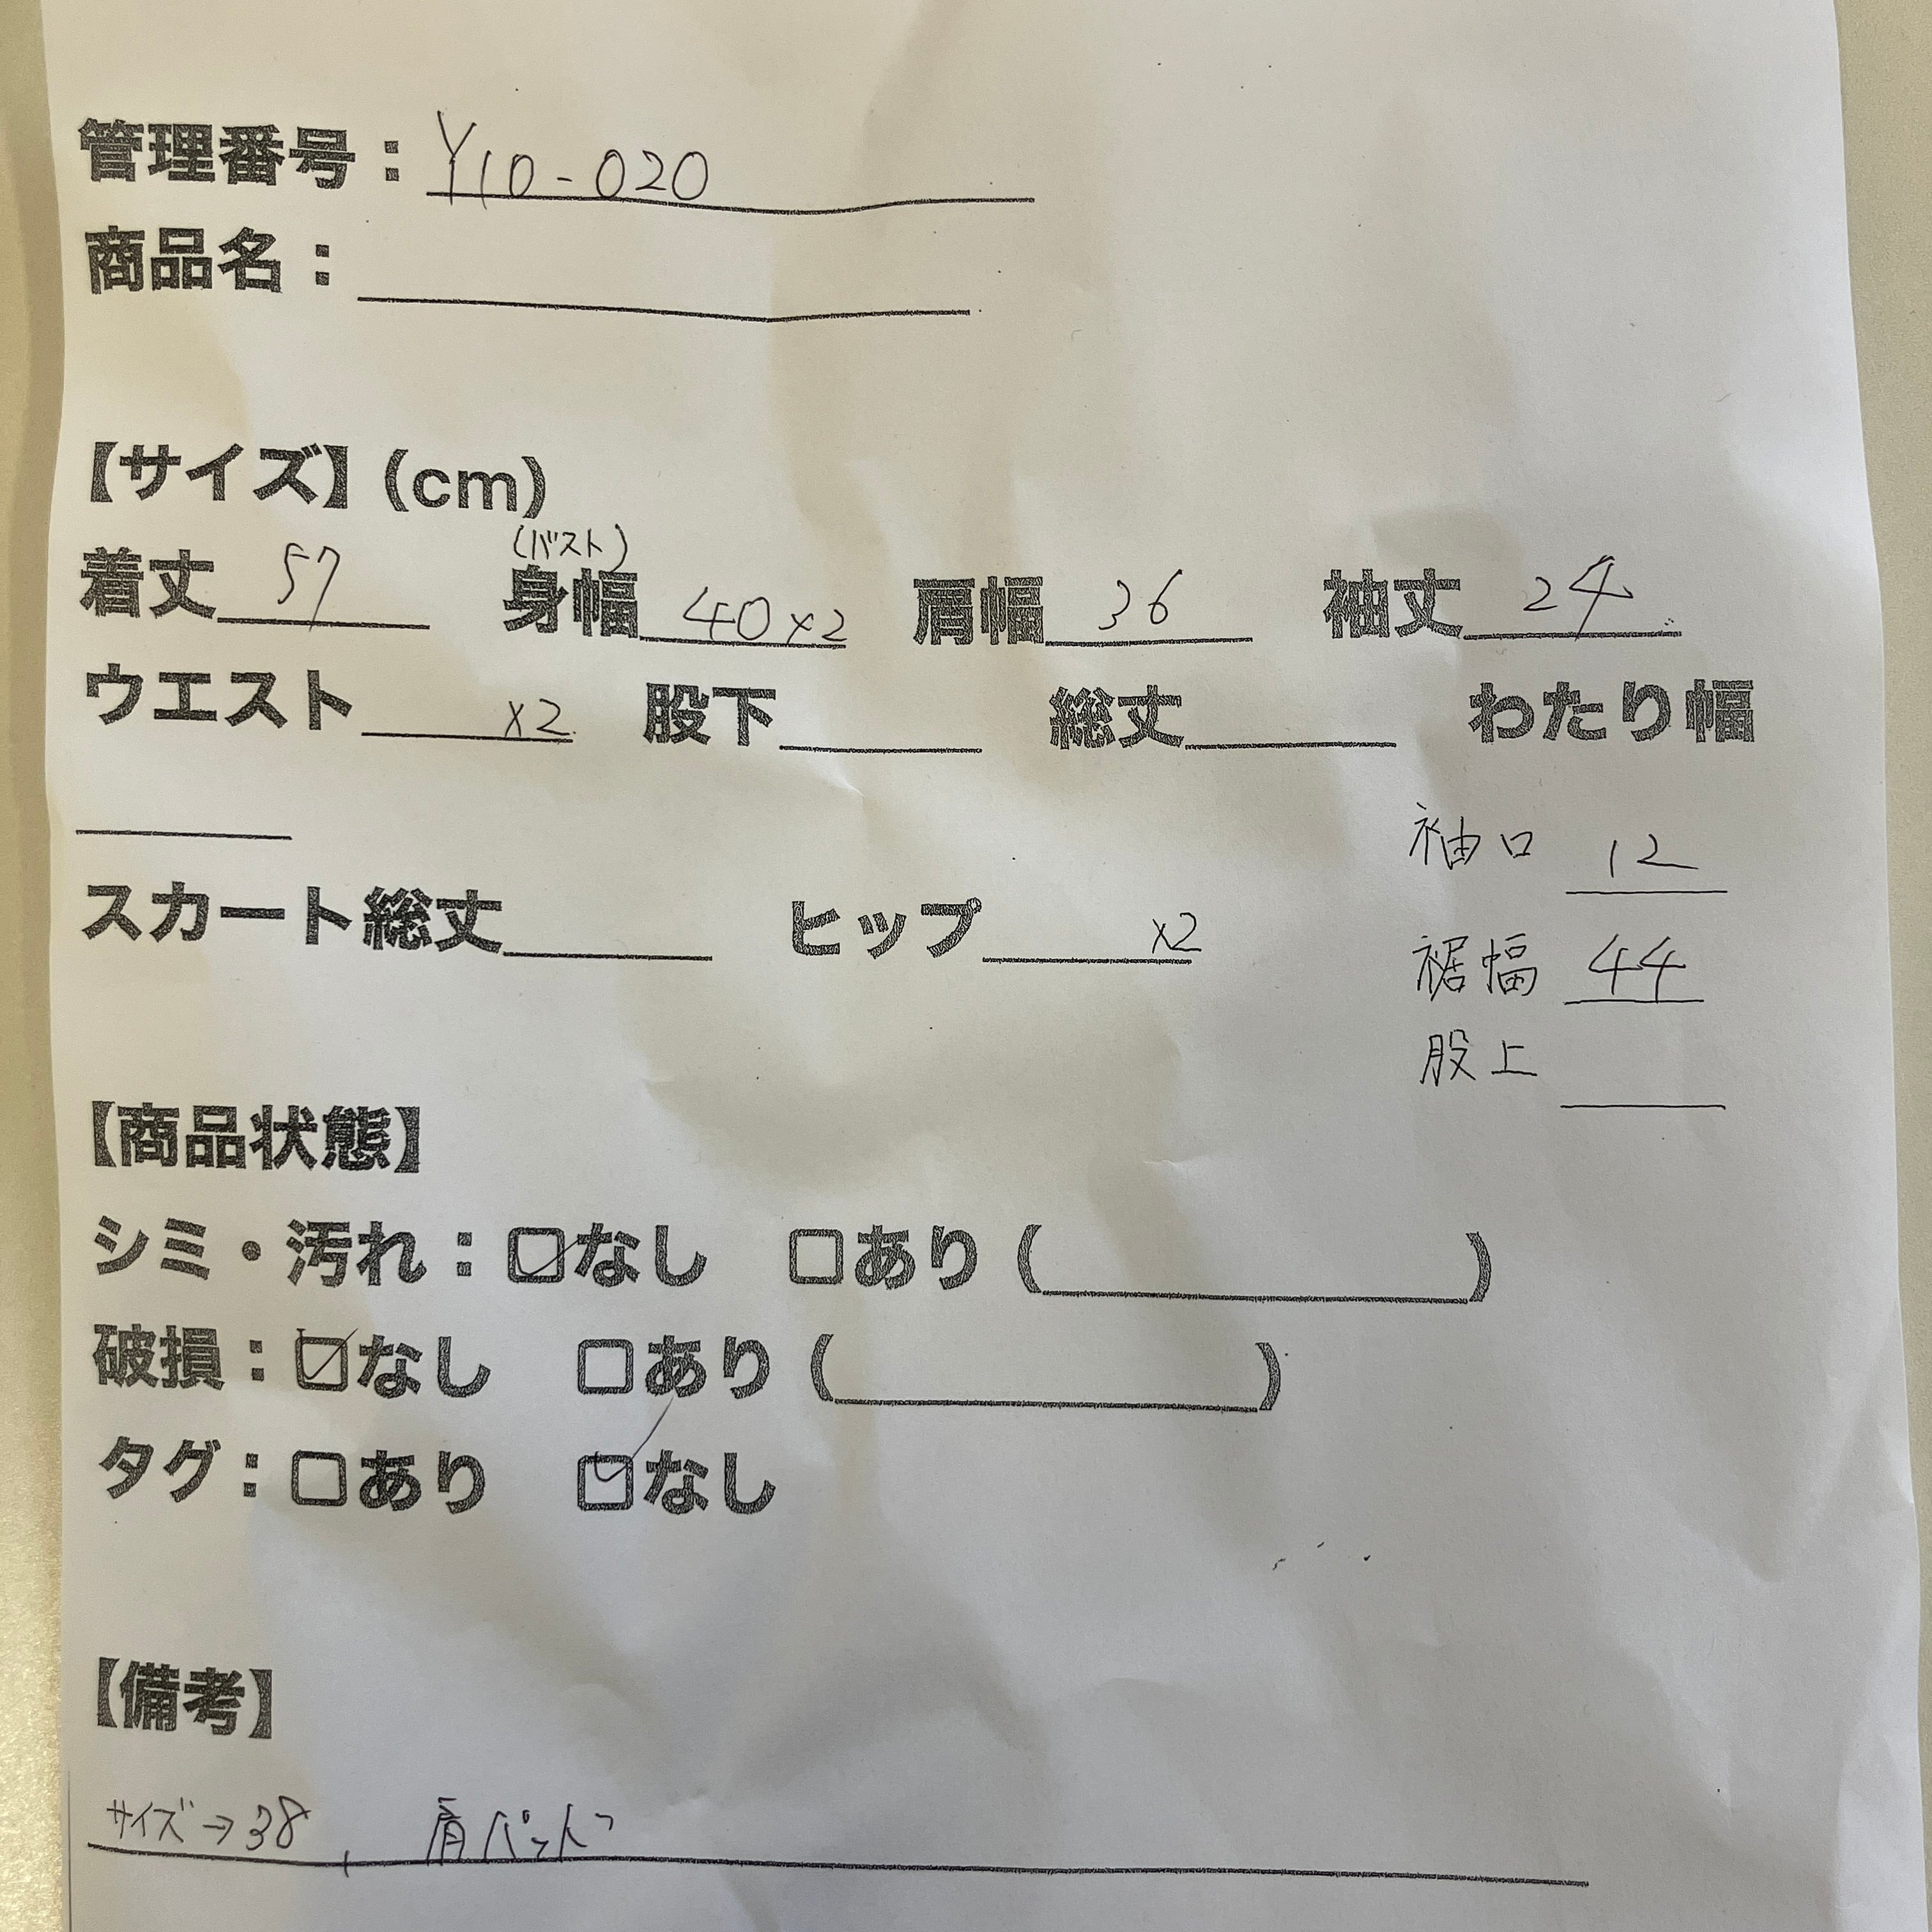 管理番号：Y10-020
商品名：
【サイズ】(cm)
(バスト)
着丈 57 身幅 40×2 肩幅 36 袖丈 24
ウエスト ×2 股下 総丈 わたり幅
袖口 12
スカート総丈 ヒップ ×2
裾幅 44
股上
【商品状態】
シミ・汚れ：☑なし □あり( )
破損：☑なし □あり( )
タグ：□あり ☑なし
【備考】
サイズ→38, 肩パット